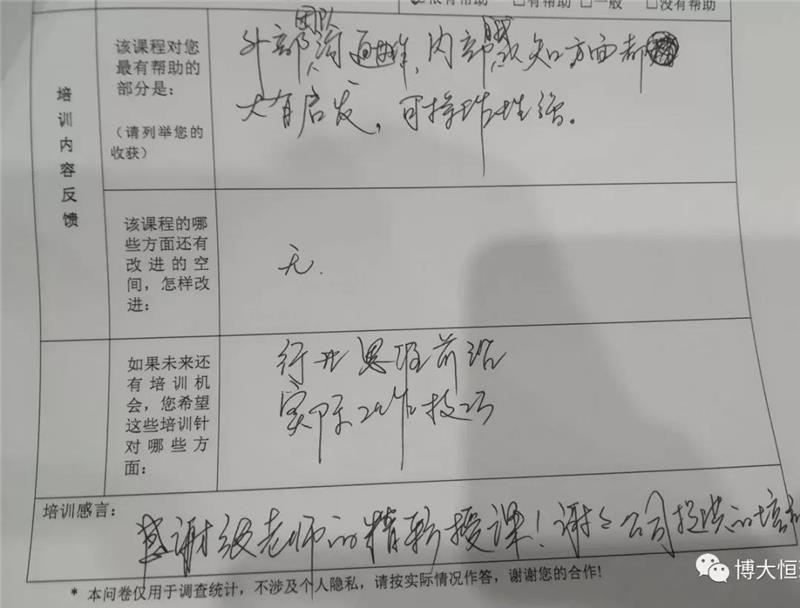 有帮助 □一般 □没有帮助
培训内容反馈
该课程对您
最有帮助的
部分是:
(请列举您的
收获)
团队
外部沟通, 内部 知方面都
大有启发, 可操作性强。
该课程的哪
些方面还有
改进的空
间,怎样改
进:
无.
如果未来还
有培训机
会,您希望
这些培训针
对哪些方
面:
行业 前沿
实际工作技巧
培训感言:
感谢 老师的精彩授课! 谢谢公司提供的培
* 本问卷仅用于调查统计,不涉及个人隐私,请按实际情况作答,谢谢您的合作!
博大恒